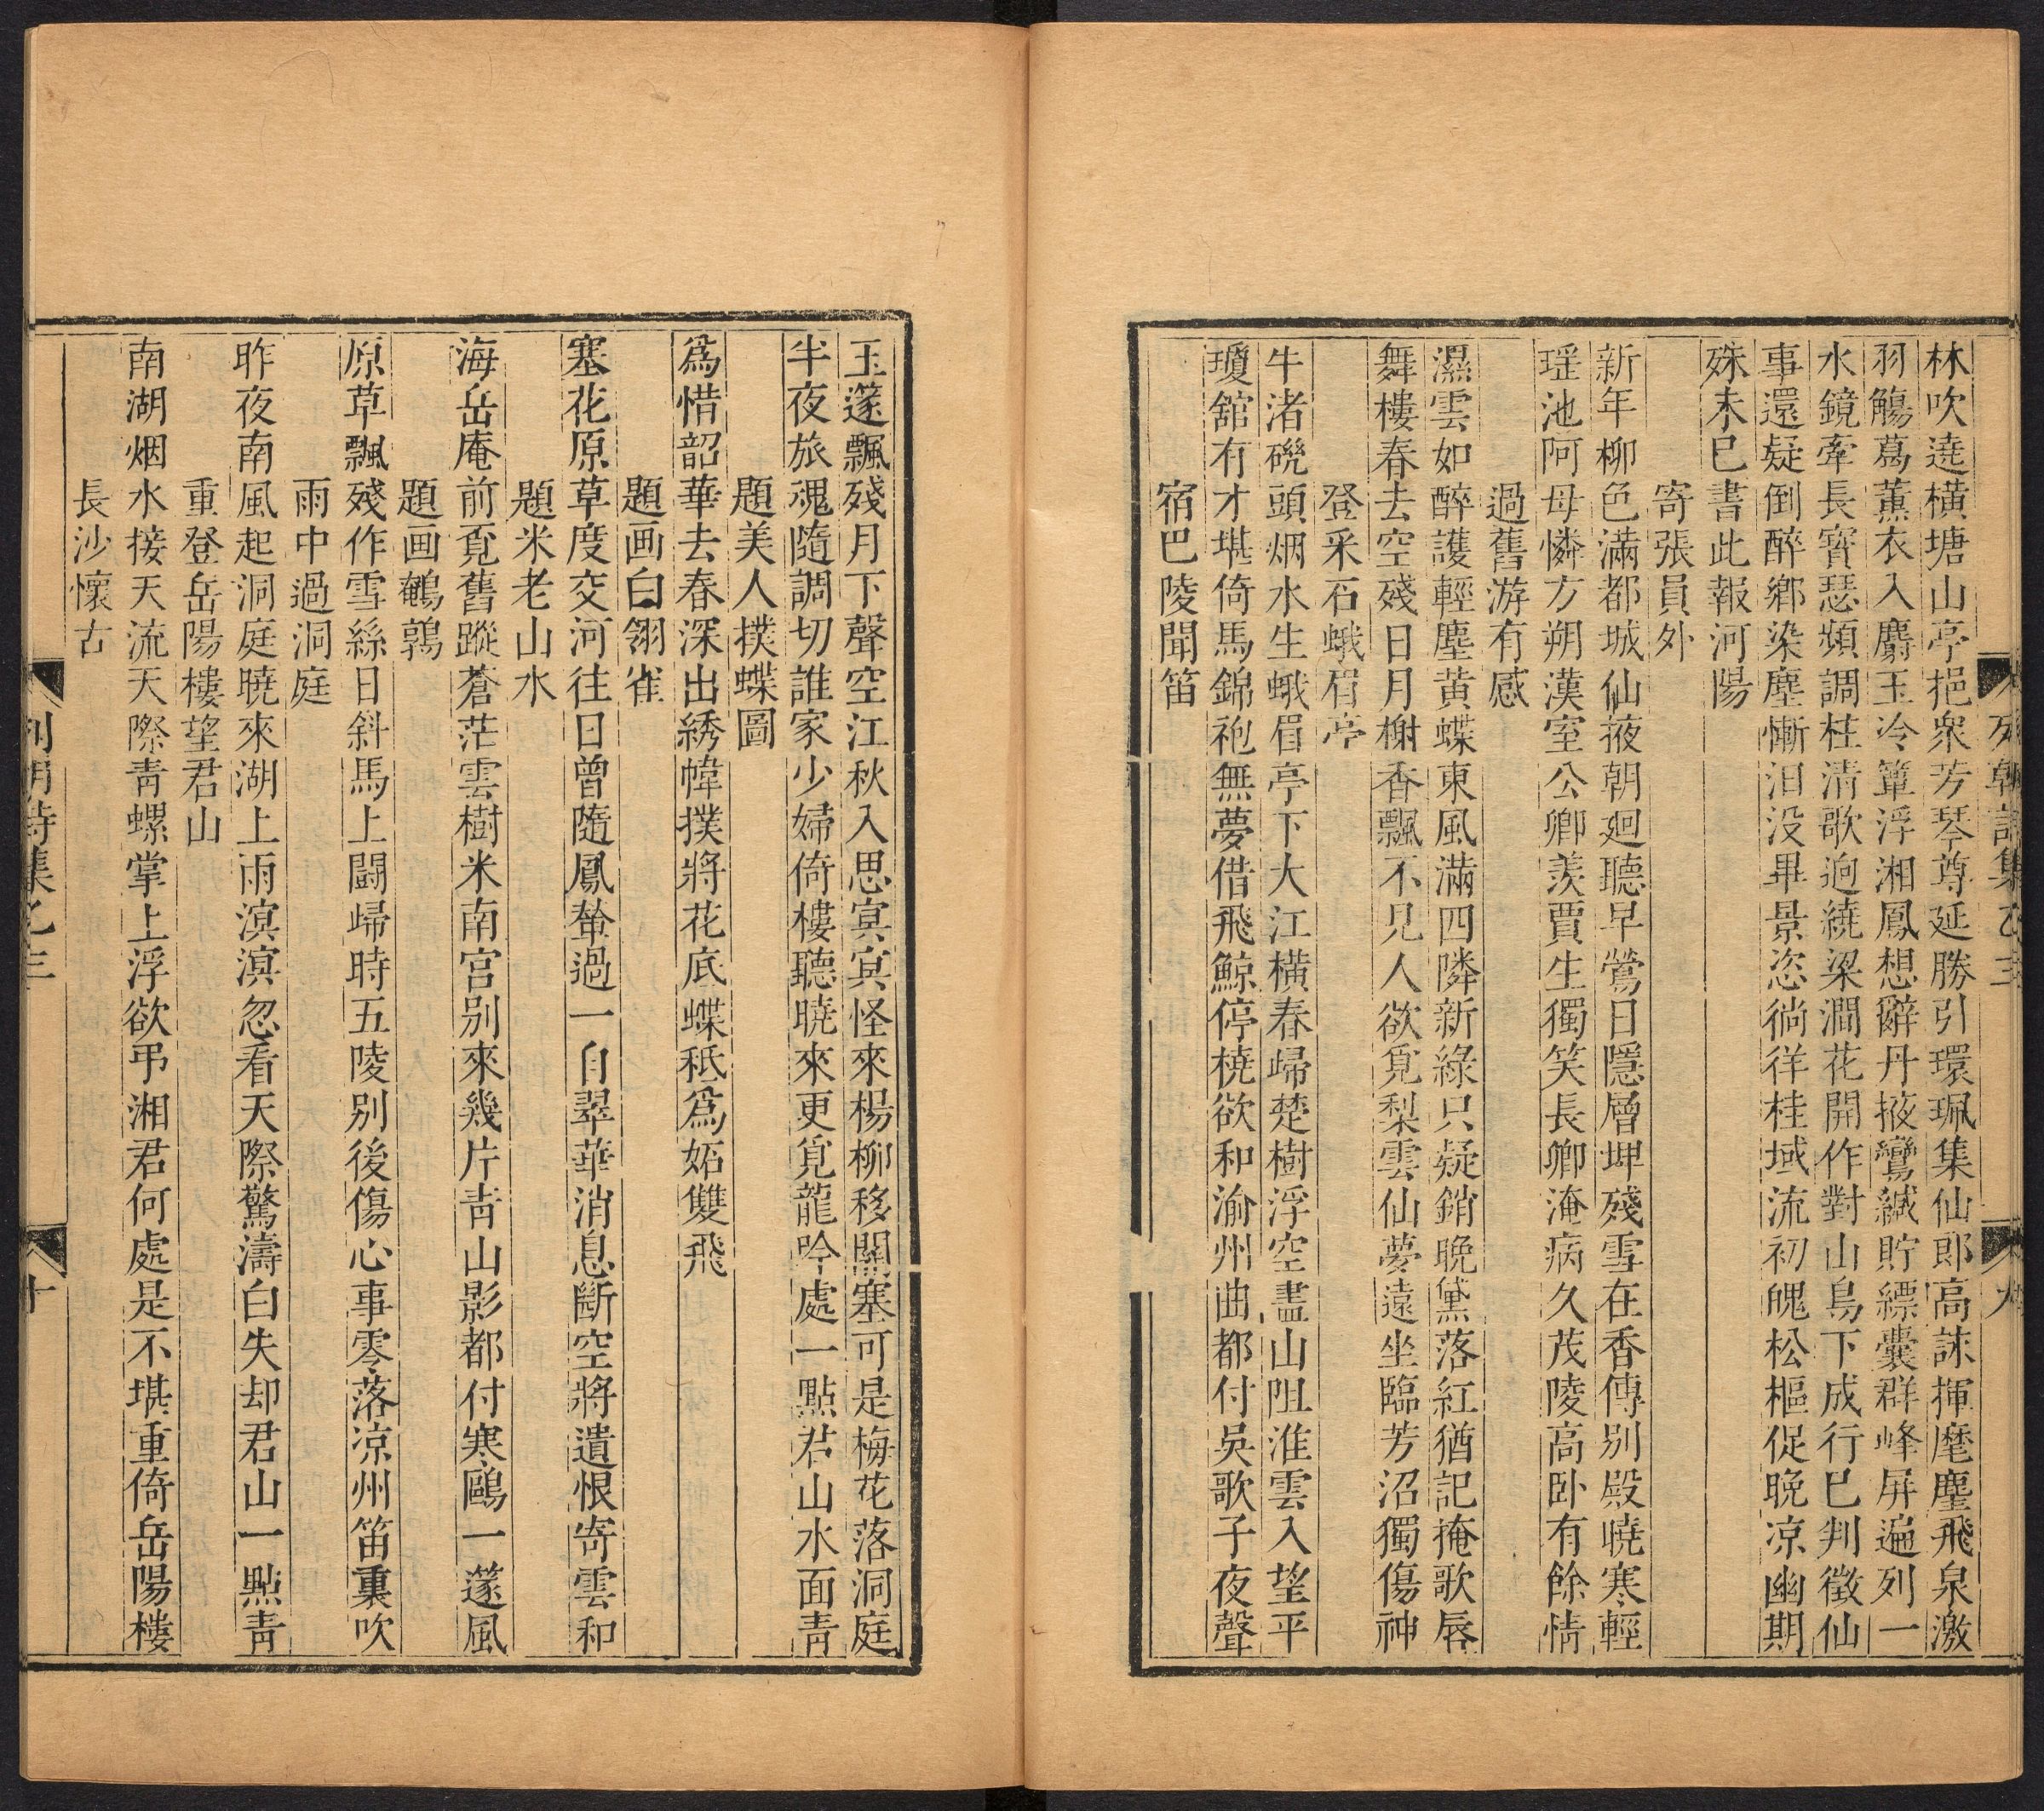 林吹遶橫塘山亭挹衆芳琴尊延勝引環珮集仙郎高誄揮麾麈飛泉激
羽觴葛薰衣入麝玉冷簟浮湘鳳想辭丹掖鸞緘貯縹囊群峰屏遍列一
水鏡牽長寳瑟頻調柱清歌逈繞梁澗花開作對山鳥下成行巳判徵仙
事還疑倒醉鄉染塵慚汨没畢景恣徜徉桂域流初魄松樞促晚凉幽期
殊未巳書此報河陽
寄張員外
新年柳色滿都城仙掖朝廻聽早鶯日隱層坤殘雪在香傳别殿曉寒輕
瑶池阿母憐方朔漢室公卿羨賈生獨笑長卿淹病久茂陵高卧有餘情
過舊游有感
濕雲如醉護輕塵黄蝶東風滿四隣新綠只疑銷晚黛落紅猶記掩歌唇
舞樓春去空殘日月榭香飄不見人欲覓梨雲仙夢遠坐臨芳沼獨傷神
登采石蛾眉亭
牛渚磯頭烟水生蛾眉亭下大江橫春歸楚樹浮空盡山阻淮雲入望平
瓊舘有才堪倚馬錦袍無夢借飛鯨停橈欲和渝州曲都付吳歌子夜聲
宿巴陵聞笛
列朝詩集乙三
玉篴飄殘月下聲空江秋入思冥冥怪來楊柳移關塞可是梅花落洞庭
半夜旅魂隨調切誰家少婦倚樓聽曉來更覓龍吟處一點君山水面青
題美人撲蝶圖
爲惜韶華去春深出綉幃撲將花底蝶秖爲妬雙飛
題画白翎雀
塞花原草度交河往日曾隨鳳輦過一自翠華消息斷空將遺恨寄雲和
題米老山水
海岳庵前覔舊蹤蒼茫雲樹米南宫别來幾片青山影都付寒鷗一篴風
題画鵪鶉
原草飄殘作雪絲日斜馬上闘歸時五陵别後傷心事零落凉州笛裏吹
雨中過洞庭
昨夜南風起洞庭曉來湖上雨溟溟忽看天際驚濤白失却君山一點青
重登岳陽樓望君山
南湖烟水接天流天際青螺掌上浮欲弔湘君何處是不堪重倚岳陽樓
長沙懷古
列朝詩集乙三
十